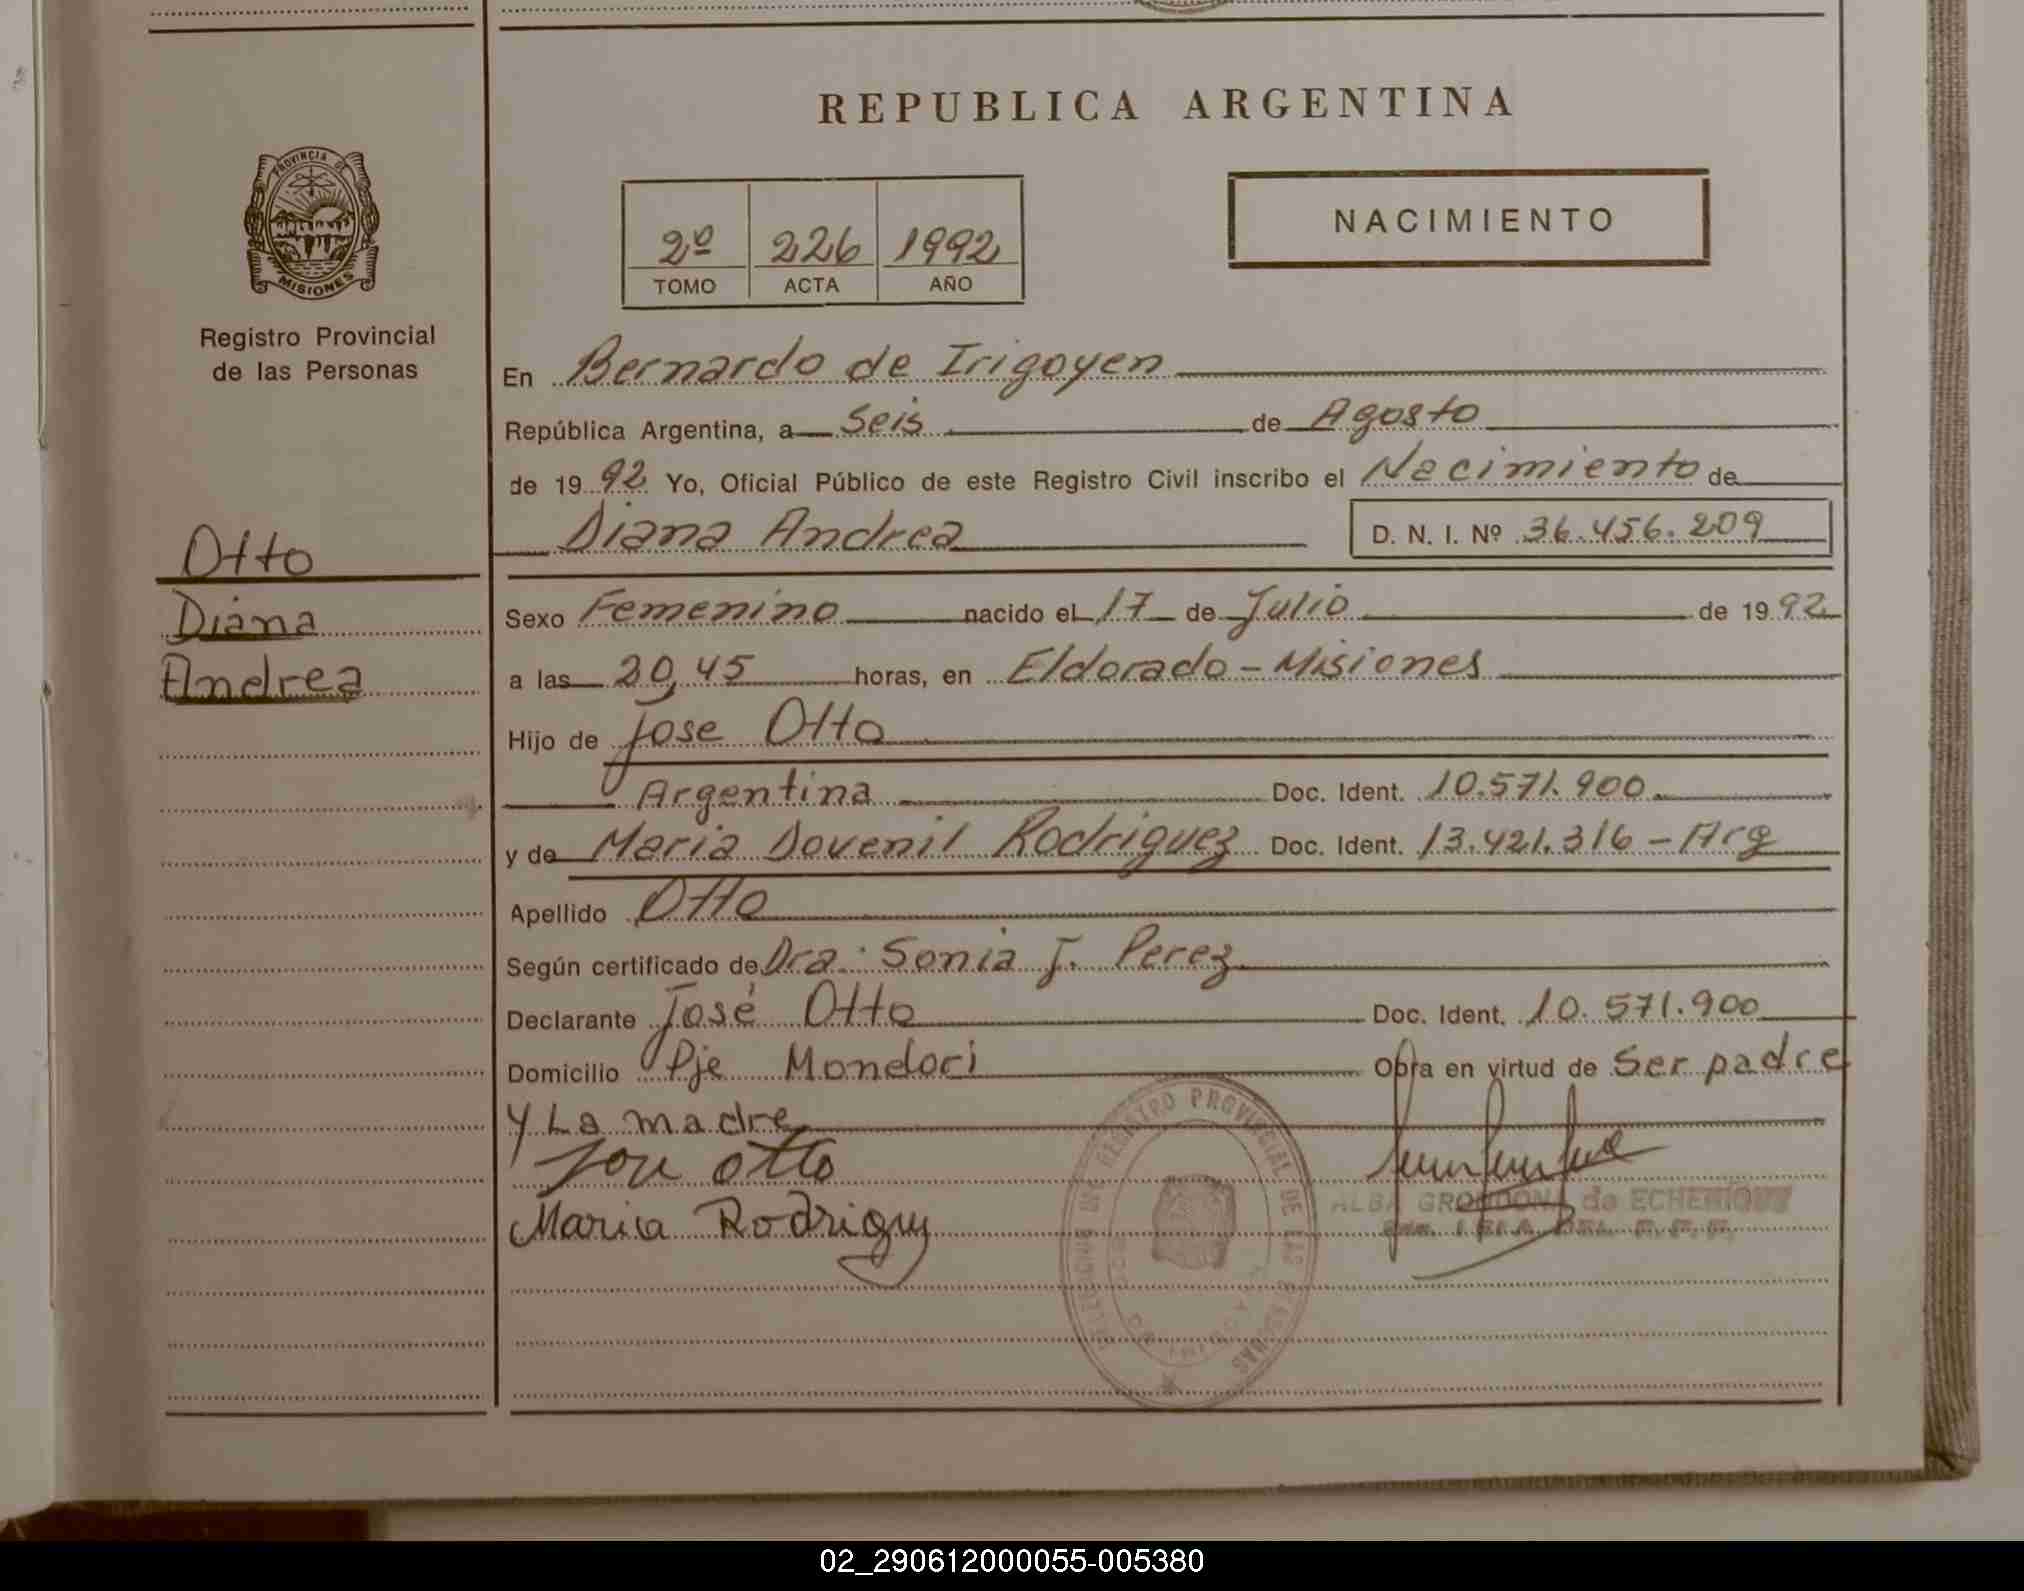 REPUBLICA ARGENTINA
PROVINCIA DE
MISIONES
Registro Provincial
de las Personas
Otto
Diana
Andrea
2º 226 1992
TOMO ACTA AÑO
NACIMIENTO
En Bernardo de Irigoyen
República Argentina, a Seis de Agosto
de 1992 Yo, Oficial Público de este Registro Civil inscribo el Nacimiento de
Diana Andrea D. N. I. Nº 36.456.209
Sexo Femenino nacido el 17 de Julio de 1992
a las 20,45 horas, en Eldorado - Misiones
Hijo de Jose Otto
Argentina Doc. Ident. 10.571.900
y de Maria Dovenil Rodriguez Doc. Ident. 13.421.316 - Arg
Apellido Otto
Según certificado de Dra. Sonia J. Perez
Declarante José Otto Doc. Ident. 10.571.900
Domicilio Pje Mondori Obra en virtud de Ser padre
y La madre
Jose Otto
Maria Rodriguez
REGISTRO PROVINCIAL DE LAS
ALBA GRONDONA de ECHERIQUE
02_290612000055-005380